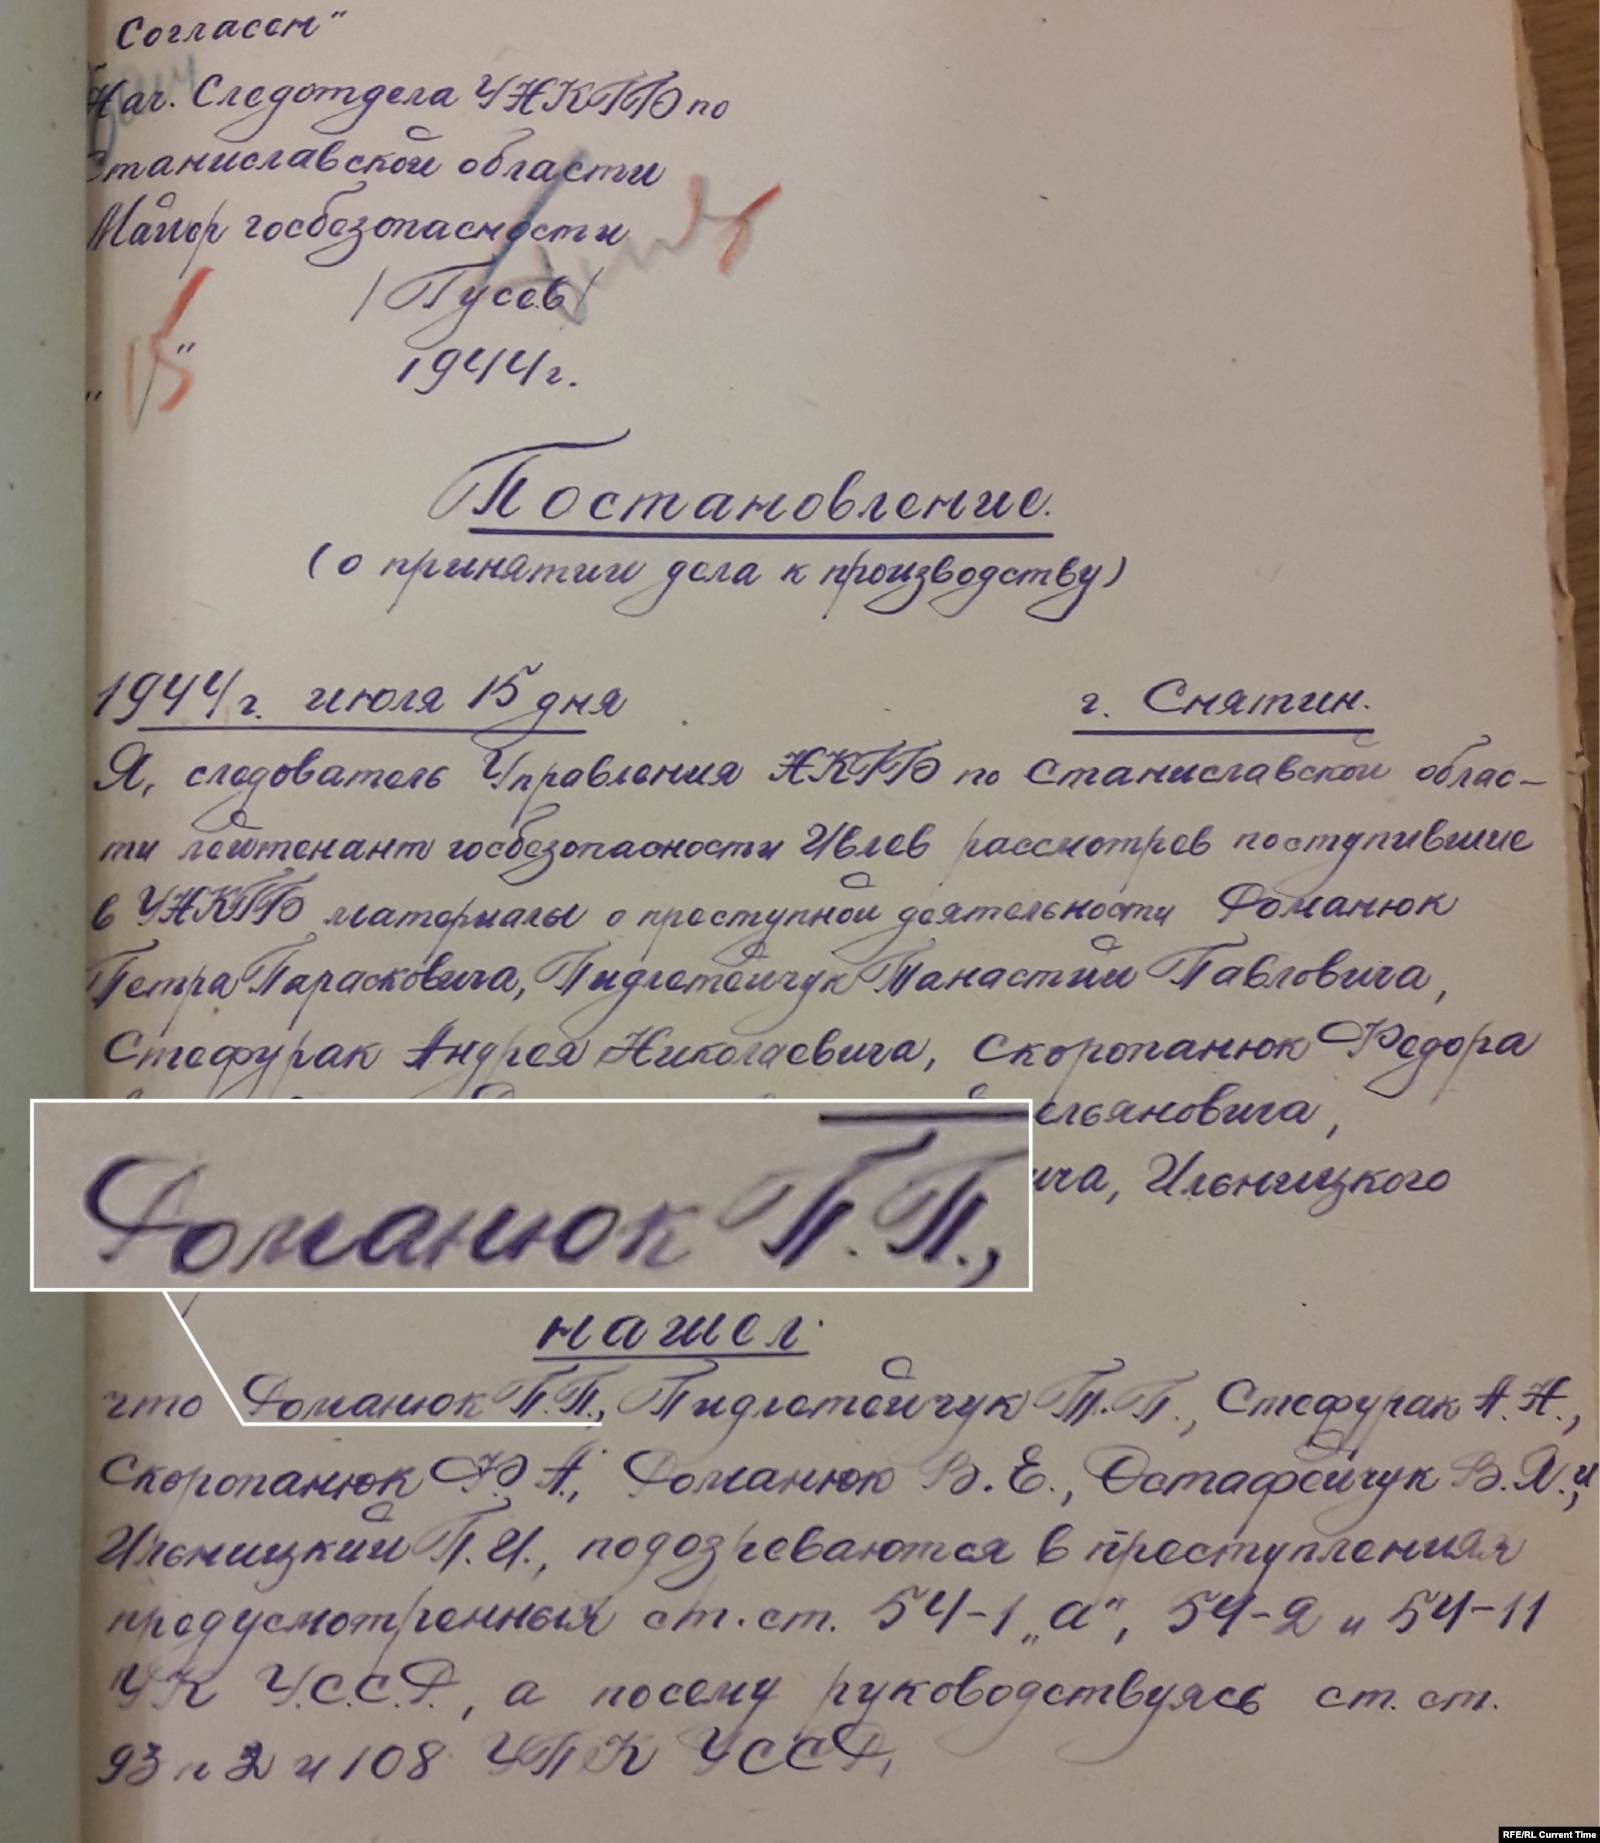 Согласен"
Нач. Следотдела УНКГБ по
Станиславской области
Майор госбезопасности
/Гусев/
" 15 " 1944 г.
Постановление.
(о принятии дела к производству)
1944 г. июля 15 дня г. Снятин.
Я, следователь Управления НКГБ по Станиславской облас-
ти лейтенант госбезопасности Ивлев рассмотрев поступившие
в УНКГБ материалы о преступной деятельности Романюк
Петра Парасковича, Пидлетейчук Танастий Павловича,
Стефурак Андрея Николаевича, Скоропанюк Федора
ельяновича,
Романюк П.П.,
ича, Ильницкого
нашел:
что Романюк П.П., Пидлетейчук Т.П., Стефурак А.Н.,
Скоропанюк Ф.А., Романюк В.Е., Остафейчук В.Я., и
Ильницкий П.И., подозреваются в преступлениях
предусмотренных ст.ст. 54-1 „а", 54-2 и 54-11
УК У.С.С.Р., а посему руководствуясь ст. ст.
93 п 2 и 108 УПК УССР,
RFE/RL Current Time